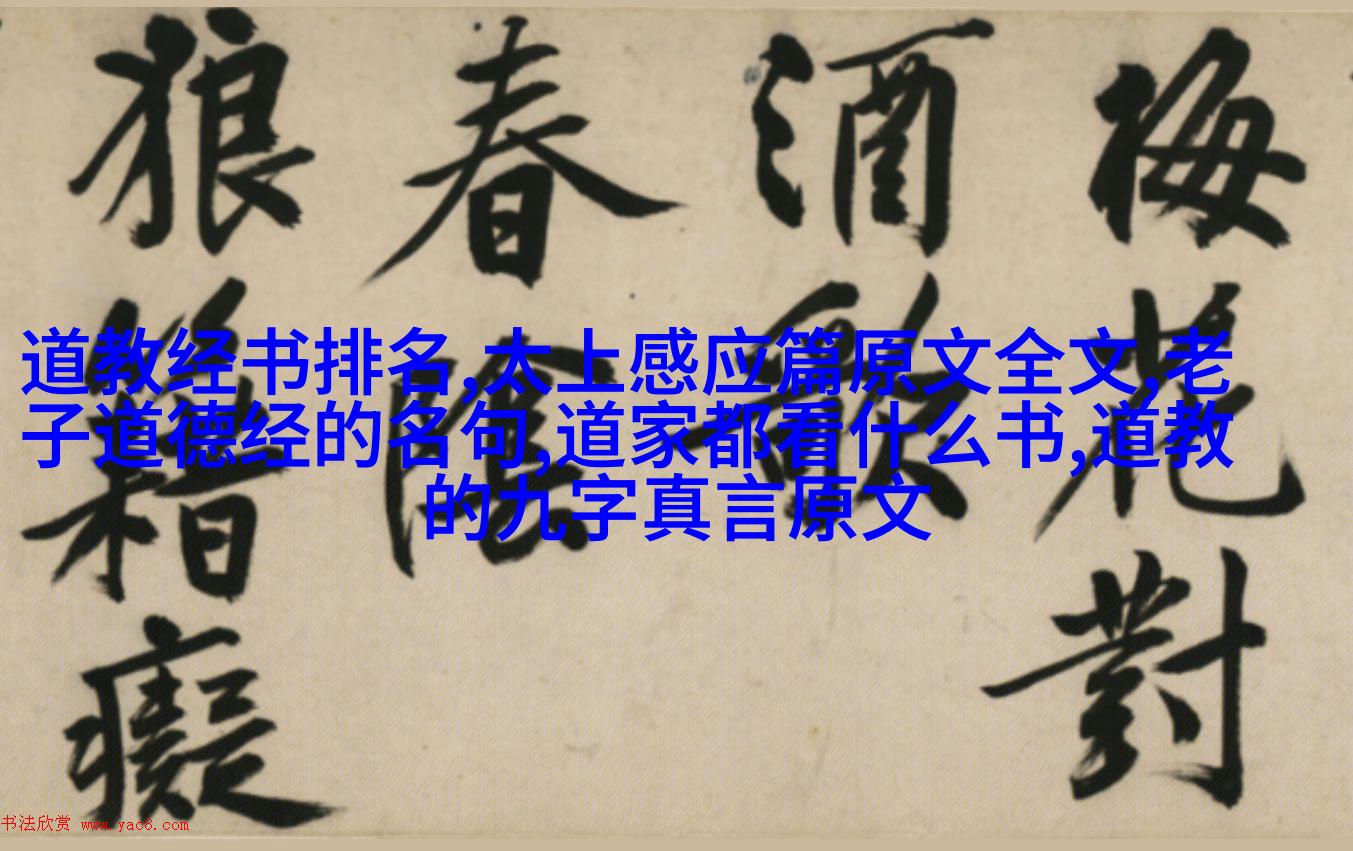 梅花對
酒
春陰
狼籍癡
道教经书排名,太上感应篇原文全文,老
子道德经的名句,道家都看什么书,道教
的九字真言原文
书法欣赏 www.yac8.com